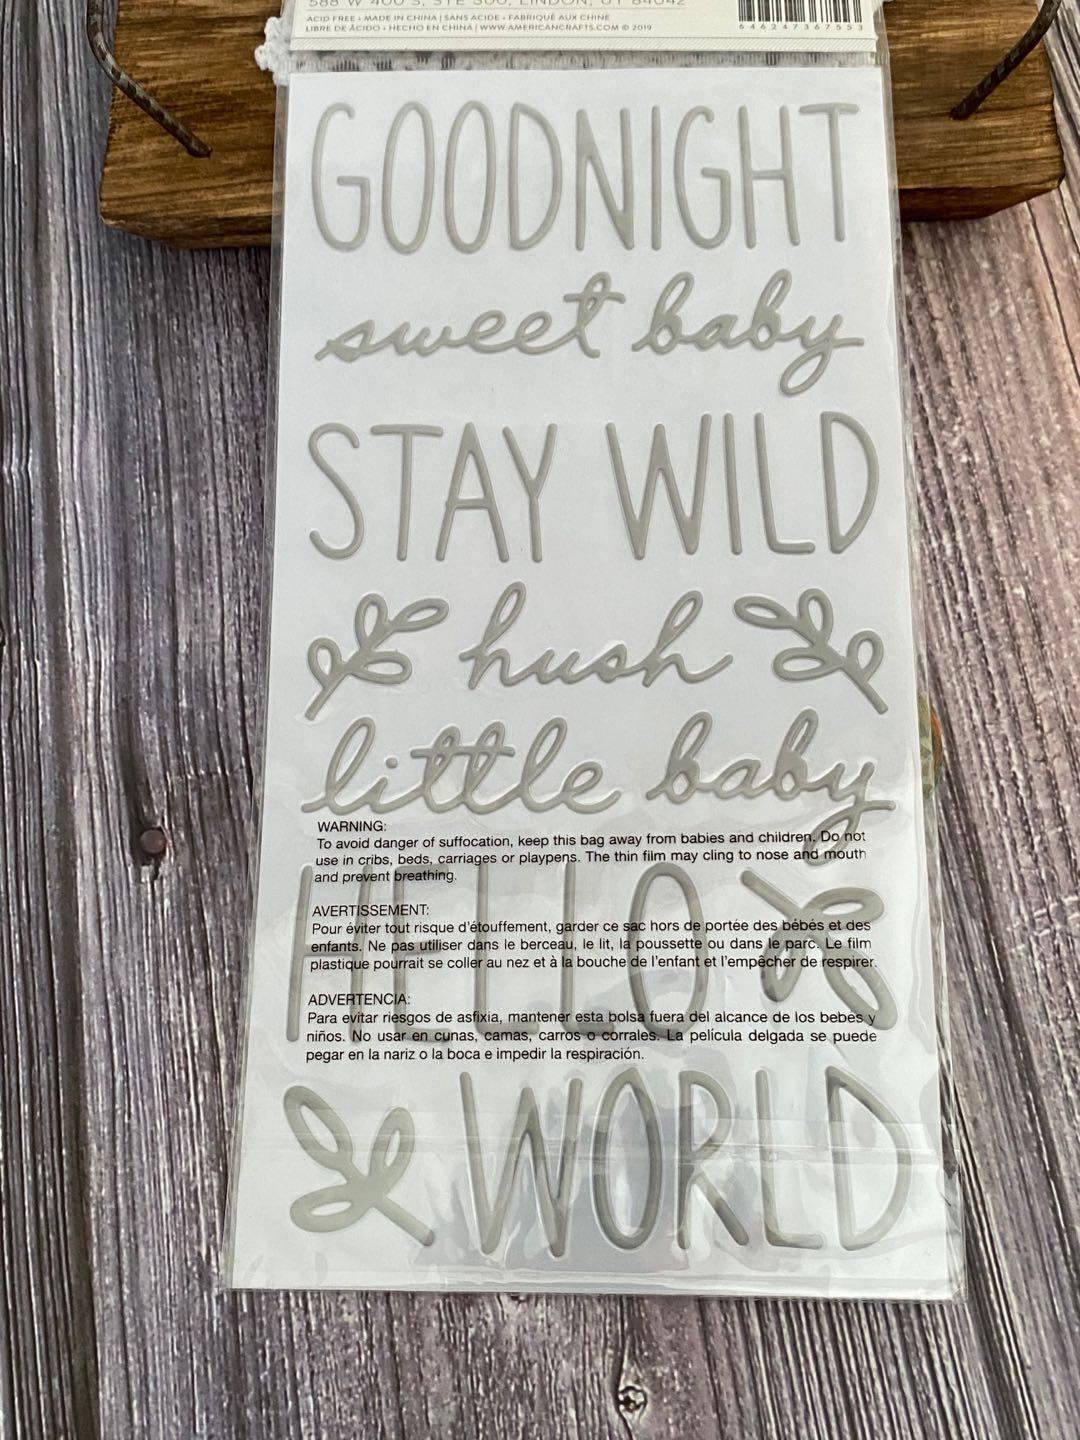 588 W 400 S, STE 300, LINDON, UT 84042
ACID FREE • MADE IN CHINA | SANS ACIDE • FABRIQUÉ AUX CHINE
LIBRE DE ÁCIDO • HECHO EN CHINA | WWW.AMERICANCRAFTS.COM © 2019
6 46247 36755 3
GOODNIGHT
sweet baby
STAY WILD
hush
little baby
WARNING:
To avoid danger of suffocation, keep this bag away from babies and children. Do not
use in cribs, beds, carriages or playpens. The thin film may cling to nose and mouth
and prevent breathing.
HELLO
AVERTISSEMENT:
Pour éviter tout risque d'étouffement, garder ce sac hors de portée des bébés et des
enfants. Ne pas utiliser dans le berceau, le lit, la poussette ou dans le parc. Le film
plastique pourrait se coller au nez et à la bouche de l'enfant et l'empêcher de respirer.
ADVERTENCIA:
Para evitar riesgos de asfixia, mantener esta bolsa fuera del alcance de los bebés y
niños. No usar en cunas, camas, carros o corrales. La película delgada se puede
pegar en la nariz o la boca e impedir la respiración.
WORLD